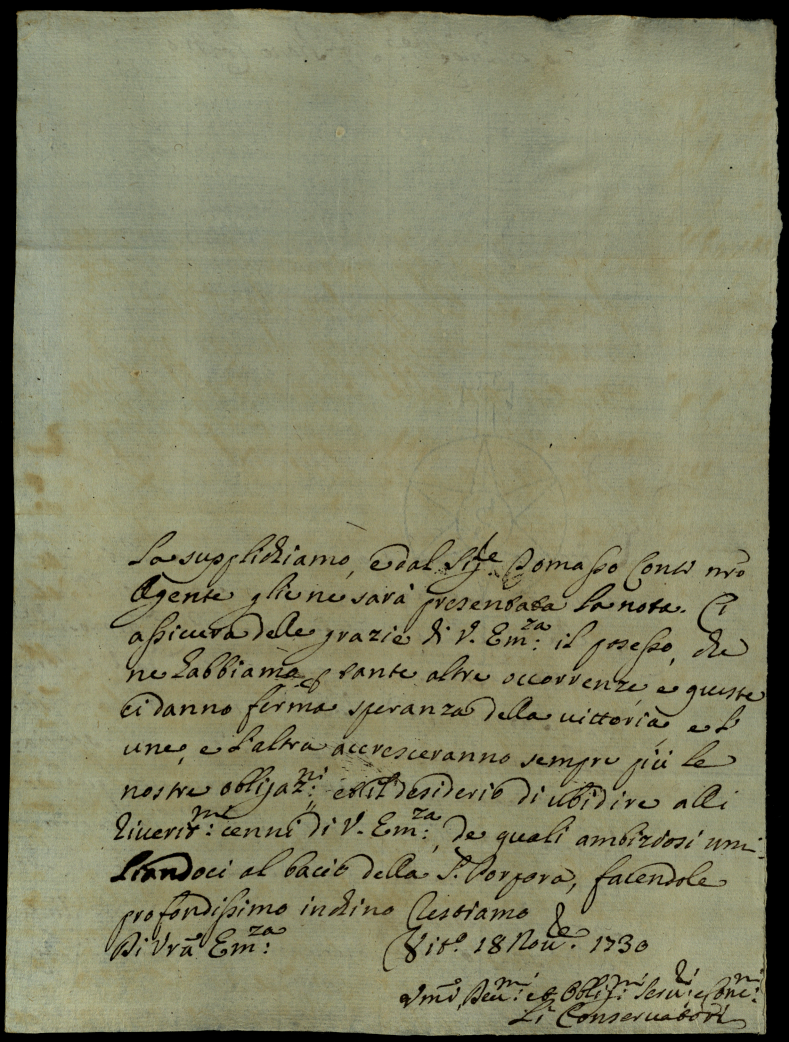 La supplichiamo, e dal Sig.re Tomasso Conti nro
Agente gliene sarà presentata la nota. Ci
assicura delle grazie di V. Em.za: il possesso, che
ne habbiamo tante altre occorrenze, e queste
ci danno ferma speranza della vittoria, e l'
une, e l'altra accresceranno sempre più le
nostre obligaz.ni: et il desiderio di ubidire alli
riverit.mi: cenni di V. Em.za:, de quali ambiziosi umi-
liandoci al bacio della S. Porpora, facendole
profondissimo inchino restiamo
Di Vra Em.za:
Vit.o 18 Nov.e: 1730
Umi, Dev.mi: et Oblig.mi: Serv.ri:
Li Conservatori